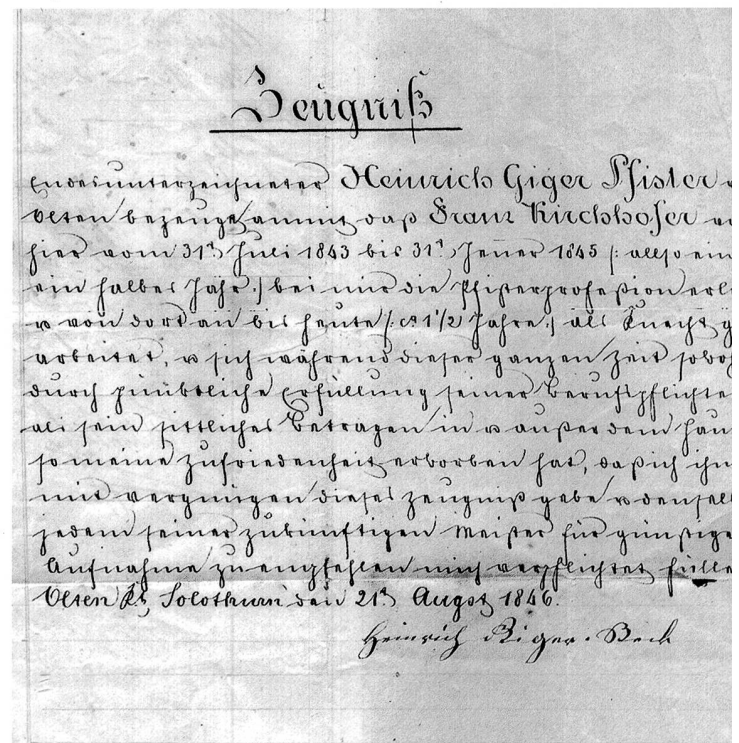 Zeugniß
Endesunterzeichneter Heinrich Giger Pfister
Olten bezeuget ammit daß Franz Kirchhofer
hier vom 31t Juli 1843 bis 31t Jener 1845 /: allso ein
ein halbes Jahr :/ bei mir die Pfisterprofeßion erl
u von dort an bis heute /: ca 1 1/2 Jahre :/ als Knecht g
arbeitet, u sich während dieser ganzen Zeit sowoh
durch pünktliche Erfüllung seiner Berufspflichte
als sein sittliches Betragen in u außer dem Hau
so meine Zufriedenheit erworben hat, daß ich ihm
mit vergnügen dieses Zeugniß gebe u denselb
jedem seiner zukünftigen Meister für günstige
Aufnahme zu empfehlen mich verpflichtet fülle
Olten Kt Solothurn den 21t Augst 1846.
Heinrich Giger-Beck